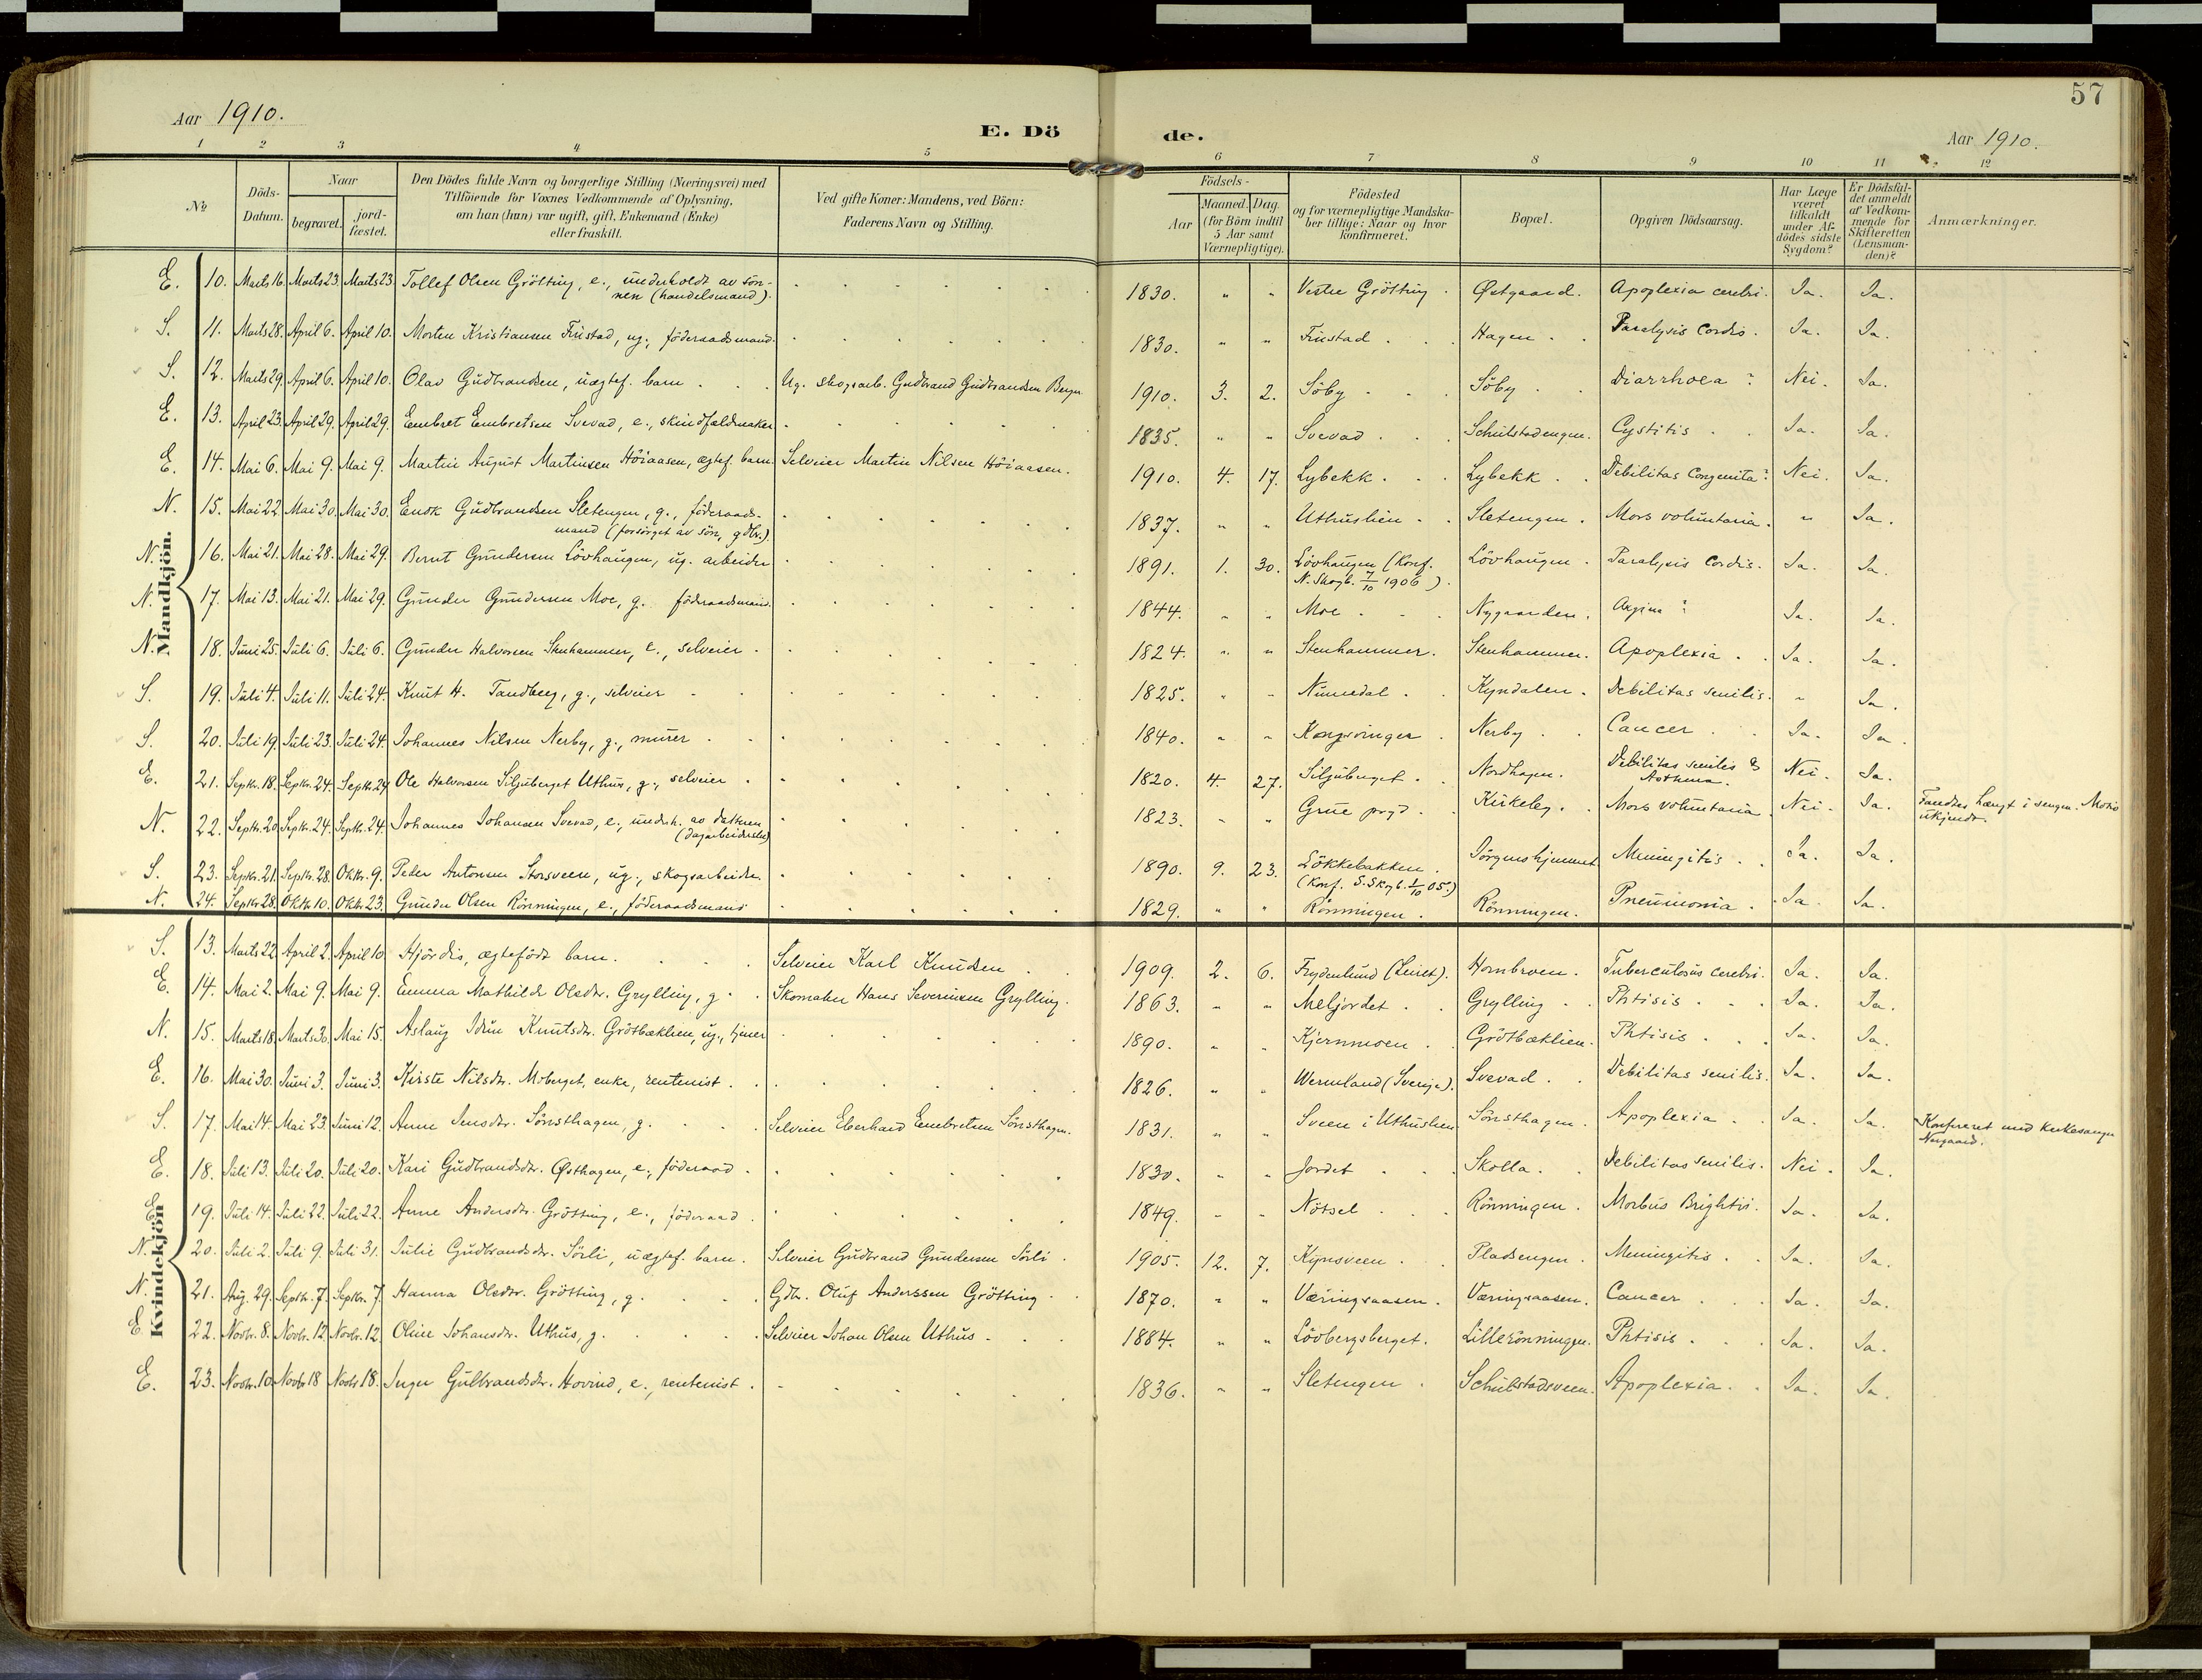 57
Aar 1910.
E. Dö de.
Aar 1910.
1 2 3 4 5 6 7 8 9 10 11 12
No
Döds-Datum.
Naar
begravet.
jord-fæstet.
Den Dödes fulde Navn og borgerlige Stilling (Næringsvei) med
Tilföiende for Voxnes Vedkommende af Oplysning,
om han (hun) var ugift, gift, Enkemand (Enke)
eller fraskilt.
Ved gifte Koner: Mandens, ved Börn:
Faderens Navn og Stilling.
Födsels-
Aar
Maaned. Dag.
(for Börn indtil
5 Aar samt
Værnepligtige).
Födested
og for værnepligtige Mandska-
ber tillige: Naar og hvor
konfirmeret.
Bopæl.
Opgiven Dödsaarsag.
Har Læge
været
tilkaldt
under Af-
dödes sidste
Sygdom?
Er Dödsfal-
det anmeldt
af Vedkom-
mende for
Skifteretten
(Lensman-
den)?
Anmærkninger.
Mandkjön.
E. 10. Marts 16. Marts 23. Marts 23. Tollef Olsen Grötting, e., underholdt av søn-
nen (handelsmand). 1830. " " Vestre Grötting. Østgaard. Apoplexia cerebri. Ja. Ja.
S. 11. Marts 28. April 6. April 10. Morten Kristiansen Frustad, ug., föderaadsmand. 1830. " " Frustad. Hagen. Paralysis Cordis. Ja. Ja.
S. 12. Marts 29. April 6. April 10. Olav Gudbrandsen, uægtef. barn. Ug. skogsarb. Gudbrand Gudbrandsen Berger 1910. 3. 2. Söby. Söby. Diarrhoea? Nei. Ja.
E. 13. April 23. April 29. April 29. Embret Embretsen Svevad, e., skindfeldmaker 1835. " " Svevad. Schulstadengen. Cystitis. Ja. Ja.
E. 14. Mai 6. Mai 9. Mai 9. Martin August Martinsen Höiaasen, ægtef. barn. Selveier Martin Nilsen Höiaasen. 1910. 4. 17. Lybekk. Lybekk. Debilitas Congenita? Nei. Ja.
N. 15. Mai 22. Mai 30. Mai 30. Enok Gudbrandsen Sletengen, g., föderaads-
mand (forsörget av sön, gdbr.) 1837. " " Uthuslien. Sletengen. Mors voluntaria. " Ja.
N. 16. Mai 21. Mai 28. Mai 29. Bernt Gundersen Lövhaugen, ug. arbeider 1891. 1. 30. Lövhaugen (Konf.
N. Skogb. 7/10 1906). Lövhaugen. Paralysis Cordis. Ja. Ja.
N. 17. Mai 13. Mai 21. Mai 29. Gunder Gundersen Moe, g. föderaadsmand. 1844. " " Moe. Nygaarden. Angina? Ja. Ja.
N. 18. Juni 25. Juli 6. Juli 6. Gunder Halvorsen Stenhammer, e., selveier. 1824. " " Stenhammer. Stenhammer. Apoplexia. Ja. Ja.
S. 19. Juli 4. Juli 11. Juli 24. Knut H. Tandberg, g., selveier 1825. " " Numedal. Kyndalen. Debilitas senilis. " Ja.
S. 20. Juli 19. Juli 23. Juli 24. Johannes Nilsen Nerby, g., murer 1840. " " Kongsvinger. Nerby. Cancer. Ja. Ja.
E. 21. Septbr. 18. Septbr. 24. Septbr. 24 Ole Halvorsen Siljuberget Uthus, g., selveier. 1820. 4. 27. Siljuberget. Nordhagen. Debilitas senilis &
Asthma. Nei. Ja.
N. 22. Septbr. 20 Septbr. 24. Septbr. 24. Johannes Johansen Svevad, e., underh. av datteren
(dagarbeiderske) 1823. " " Grue prgd. Kirkeby. Mors voluntaria. Nei. Ja. Fandtes hængt i sengen. Motiv
ukjendt.
S. 23. Septbr. 21. Septbr. 28. Oktbr. 9. Peder Antonsen Storsveen, ug., skogsarbeider. 1890. 9. 23. Lökkebakken.
(Konf. S. Skogb. 1/10 05.) Meningitis. Ja. Ja.
N. 24. Septbr. 28. Oktbr. 10. Oktbr. 23. Gunder Olsen Rönningen, e., föderaadsmand 1829. " " Rönningen. Rönningen. Pneumonia. Ja. Ja.
Kvindekjön
S. 13. Marts 22 April 2. April 10 Hjördis, ægtefödt barn. Selveier Karl Knudsen. 1909. 2. 6. Frydenlund (Leiret). Hornbroen. Tuberculosus cerebri. Ja. Ja.
E. 14. Mai 2. Mai 9. Mai 9. Emma Mathilde Olsdtr. Grylling, g. Skomaker Hans Severinsen Grylling. 1863. " " Meljordet. Grylling. Phtisis. Ja. Ja.
N. 15. Marts 18. Marts 30. Mai 15. Aslaug Idun Knutsdtr. Grötbæklien, ug., tjener 1890. " " Kjernmoen. Grötbæklien. Phtisis. Ja. Ja.
E. 16. Mai 30. Juni 3. Juni 3. Kirste Nilsdtr. Moberget, enke, rentenist. 1826. " " Wermland (Sverige). Svevad. Debilitas senilis. Ja. Ja.
S. 17. Mai 14. Mai 23. Juni 12. Anne Jensdtr. Sönsthagen, g. Selveier Eberhard Embretsen Sönsthagen. 1831. " " Sveen i Uthuslien Sönsthagen. Apoplexia. Ja. Ja. Konfereret med kirkesanger
Nergaard.
E. 18. Juli 13. Juli 20. Juli 20. Kari Gudbrandsdtr. Østhagen, e., föderaad. 1830. " " Jordet. Skolla. Debilitas senilis. Nei. Ja.
E. 19. Juli 14. Juli 22. Juli 22. Anne Andersdtr. Grötting, e., föderaad. 1849. " " Nötsel. Rönningen. Morbus Brightii. Ja. Ja.
N. 20. Juli 2. Juli 9. Juli 31. Julie Gudbrandsdtr. Sörli, uægtef. barn. Selveier Gudbrand Gundersen Sörli. 1905. 12. 7. Kynsveen. Pladsengen. Meningitis. Ja. Ja.
N. 21. Aug. 29. Septbr. 7. Septbr. 7. Hanna Olsdtr. Grötting, g. Gdbr. Oluf Anderssen Grötting. 1870. " " Væringsaasen. Væringsaasen. Cancer. Ja. Ja.
E. 22. Novbr. 8. Novbr. 12 Novbr. 12 Oline Johansdtr. Uthus, g. Selveier Johan Olsen Uthus. 1884. " " Lövbergsberget. Lillerönningen. Phtisis. Ja. Ja.
E. 23. Novbr. 10 Novbr 18 Novbr 18. Inger Gulbrandsdtr. Hovind, e., rentenist. 1836. " " Sletengen. Schulstadsveen. Apoplexia. Ja. Ja.